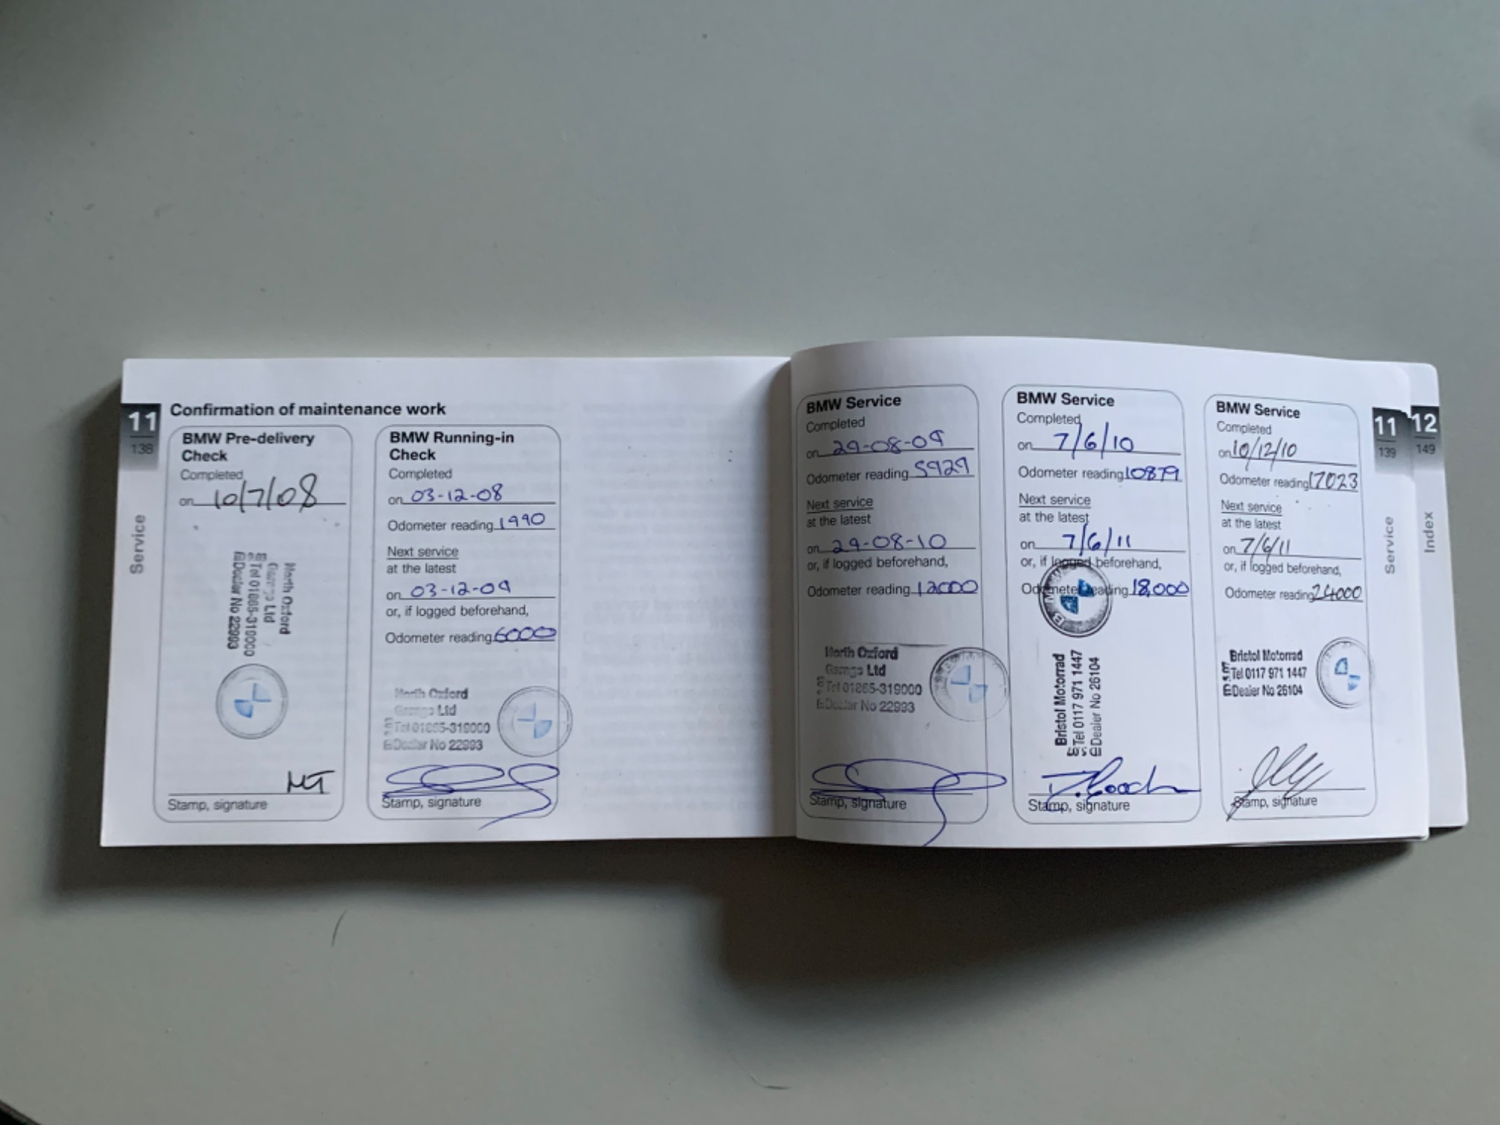 11
138
Service
Confirmation of maintenance work
BMW Pre-delivery
Check
Completed
on 10/7/08
North Oxford
Garage Ltd
Tel 01865-319000
Dealer No 22993
MT
Stamp, signature
BMW Running-in
Check
Completed
on 03-12-08
Odometer reading 1990
Next service
at the latest
on 03-12-09
or, if logged beforehand,
Odometer reading 6000
North Oxford
Garage Ltd
Tel 01865-319000
Dealer No 22993
Stamp, signature
BMW Service
Completed
on 29-08-09
Odometer reading 5929
Next service
at the latest
on 29-08-10
or, if logged beforehand,
Odometer reading 12000
North Oxford
Garage Ltd
Tel 01865-319000
Dealer No 22993
Stamp, signature
BMW Service
Completed
on 7/6/10
Odometer reading 10879
Next service
at the latest
on 7/6/11
or, if logged beforehand,
Odometer reading 18,000
Bristol Motorrad
Tel 0117 971 1447
Dealer No 26104
Stamp, signature
BMW Service
Completed
on 10/12/10
Odometer reading 17023
Next service
at the latest
on 7/6/11
or, if logged beforehand,
Odometer reading 24000
Bristol Motorrad
Tel 0117 971 1447
Dealer No 26104
Stamp, signature
11
139
Service
12
149
Index